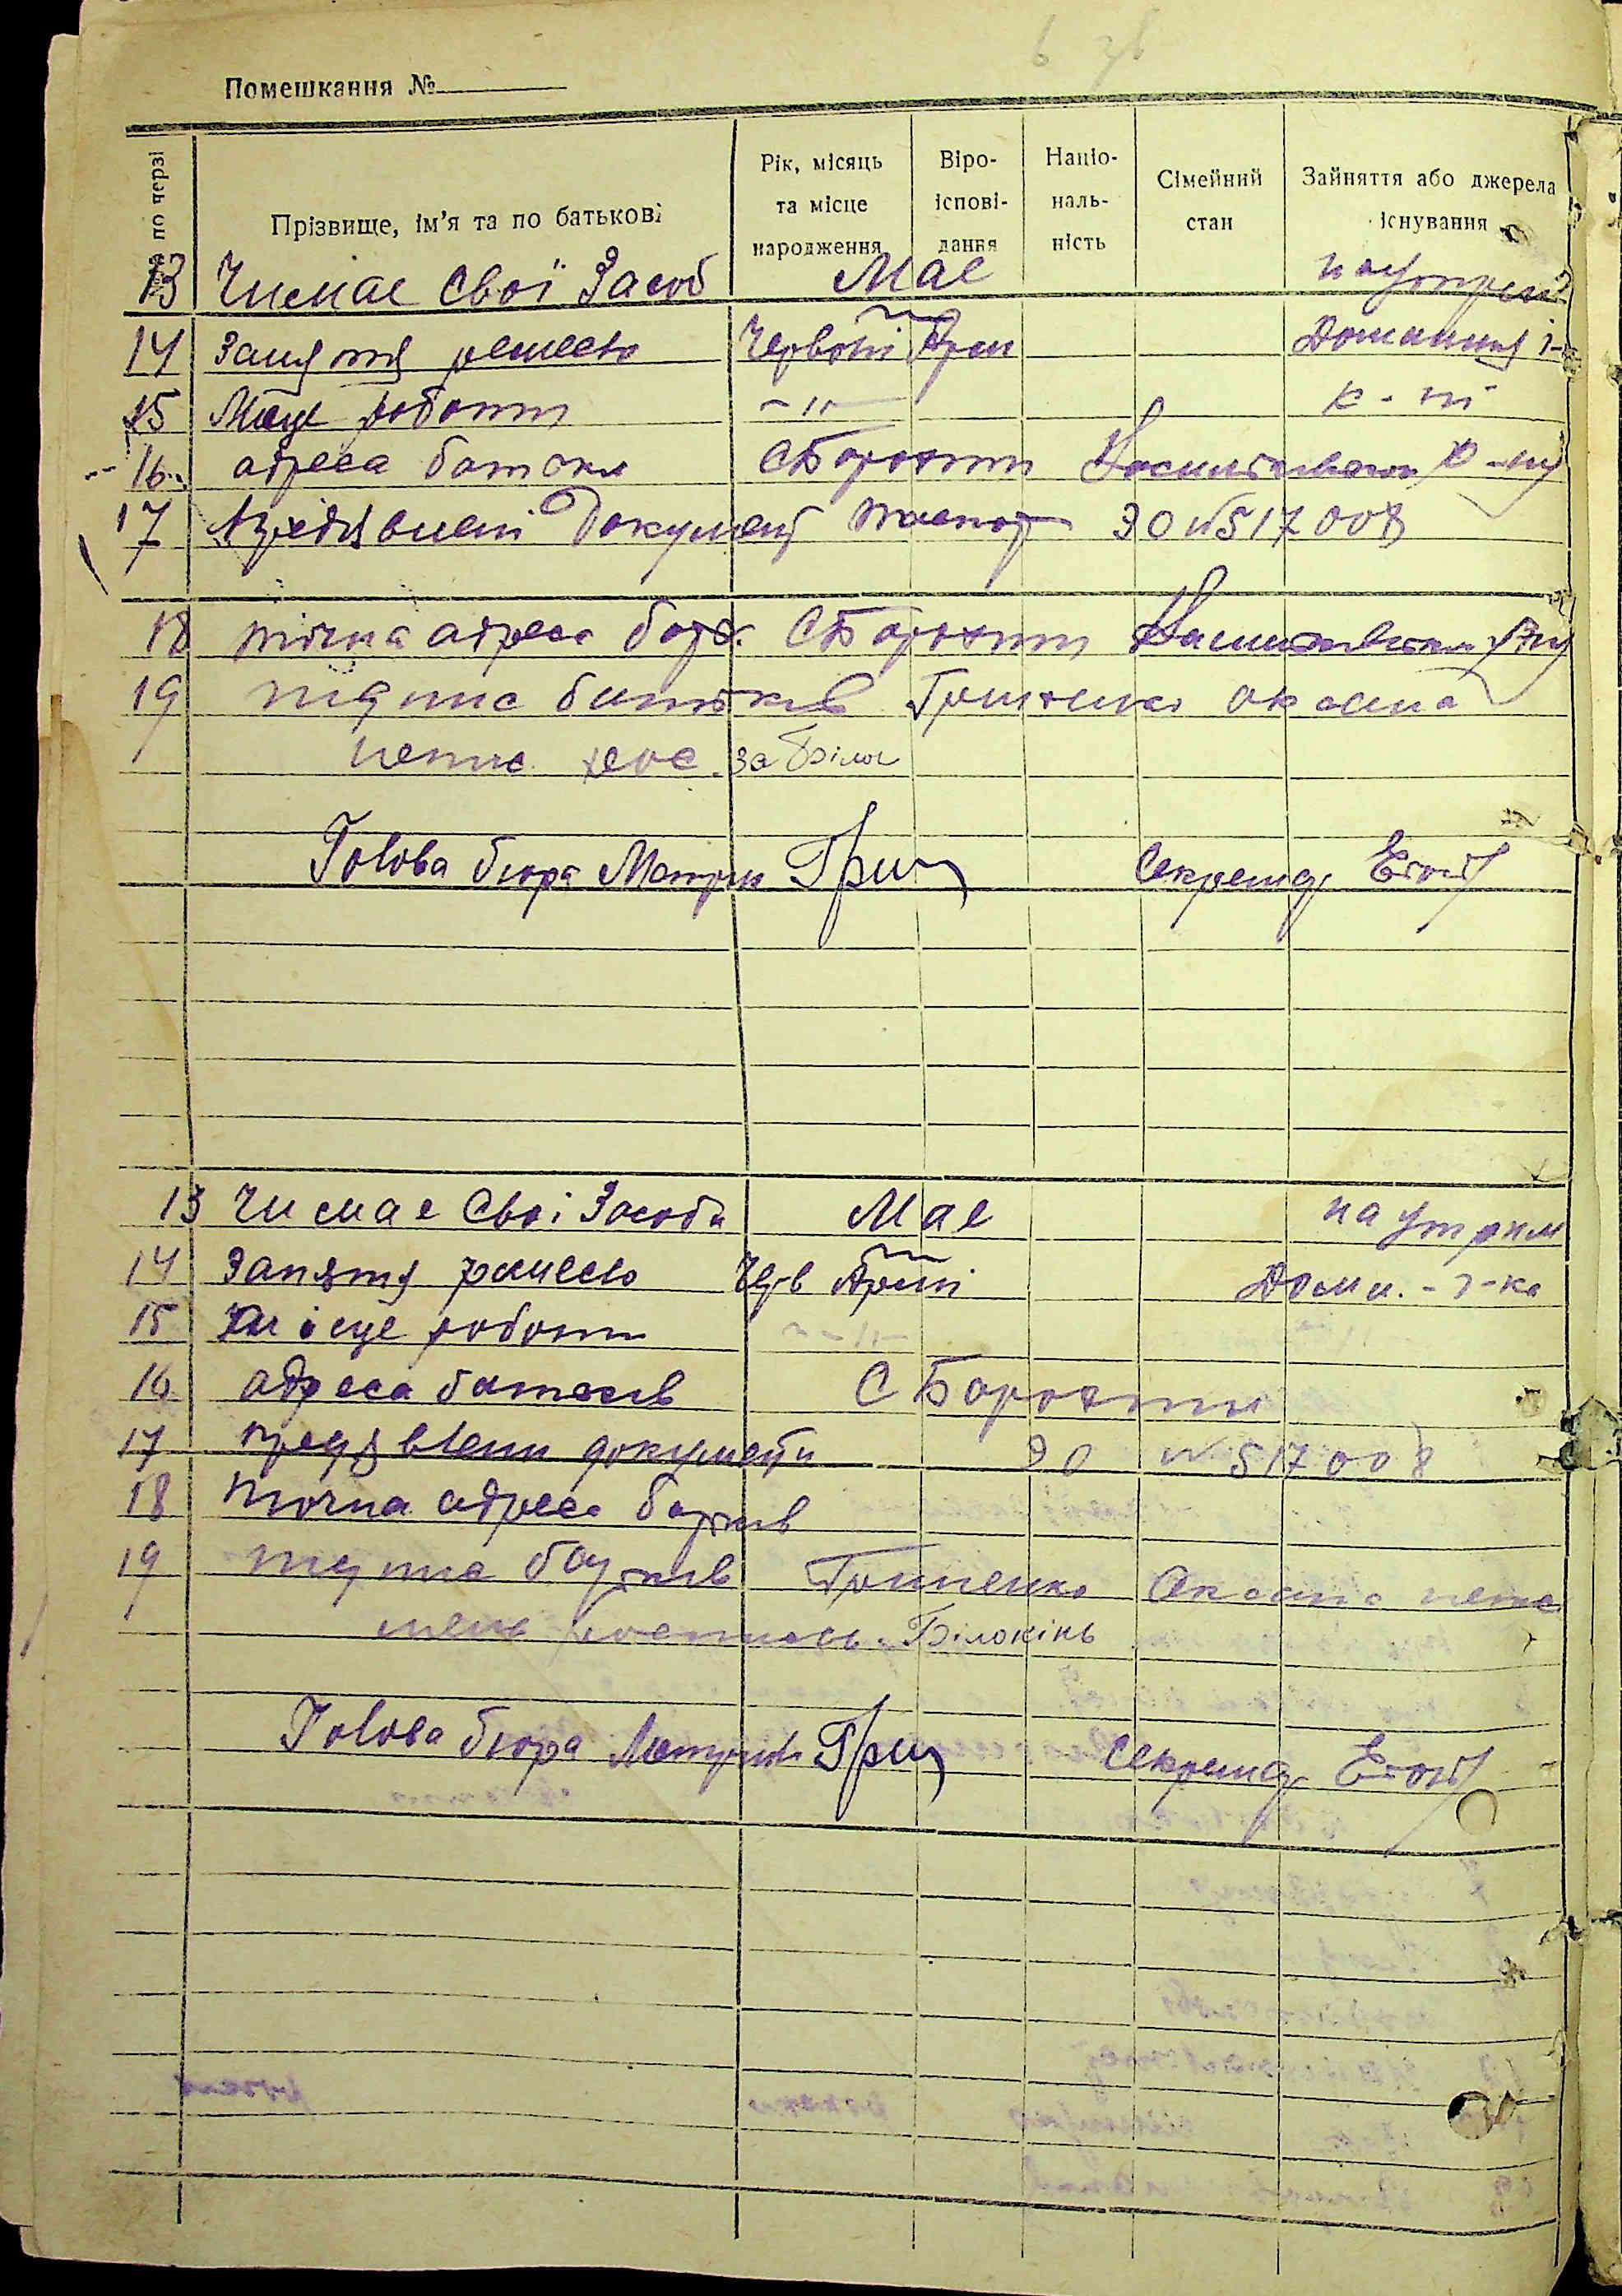 Помешкання №
№ по черзі
Прізвище, ім'я та по батькові
Рік, місяць та місце народження
Віро-іспові-дання
Націо-наль-ність
Сімейний стан
Зайняття або джерела існування
13 Чи має Свої Засоб Має на утрим
14 Заняття ремесло Червоні Арм Домашня г-
15 Місце роботи -"- к-ні
16 адреса батьки С Боромли
17 Документ паспорт ЗО №517008
18 точна адреса С Боромли
19 підпис батьків Гриценко Оксана
непис рос. за Білок
Голова бюра Метрик Гриц Секретар
13 Чи має Свої Засоби Має на утрим
14 Заняття ремесло Черв Армії Дома. - г-ка
15 Місце роботи -"-
16 адреса батьків С Боромли
17 документи ЗО №517008
18 точна адреса батьків
19 підпис батьків Гриценко Оксана непис
Білокінь
Голова бюра Метрик Гриц Секретар